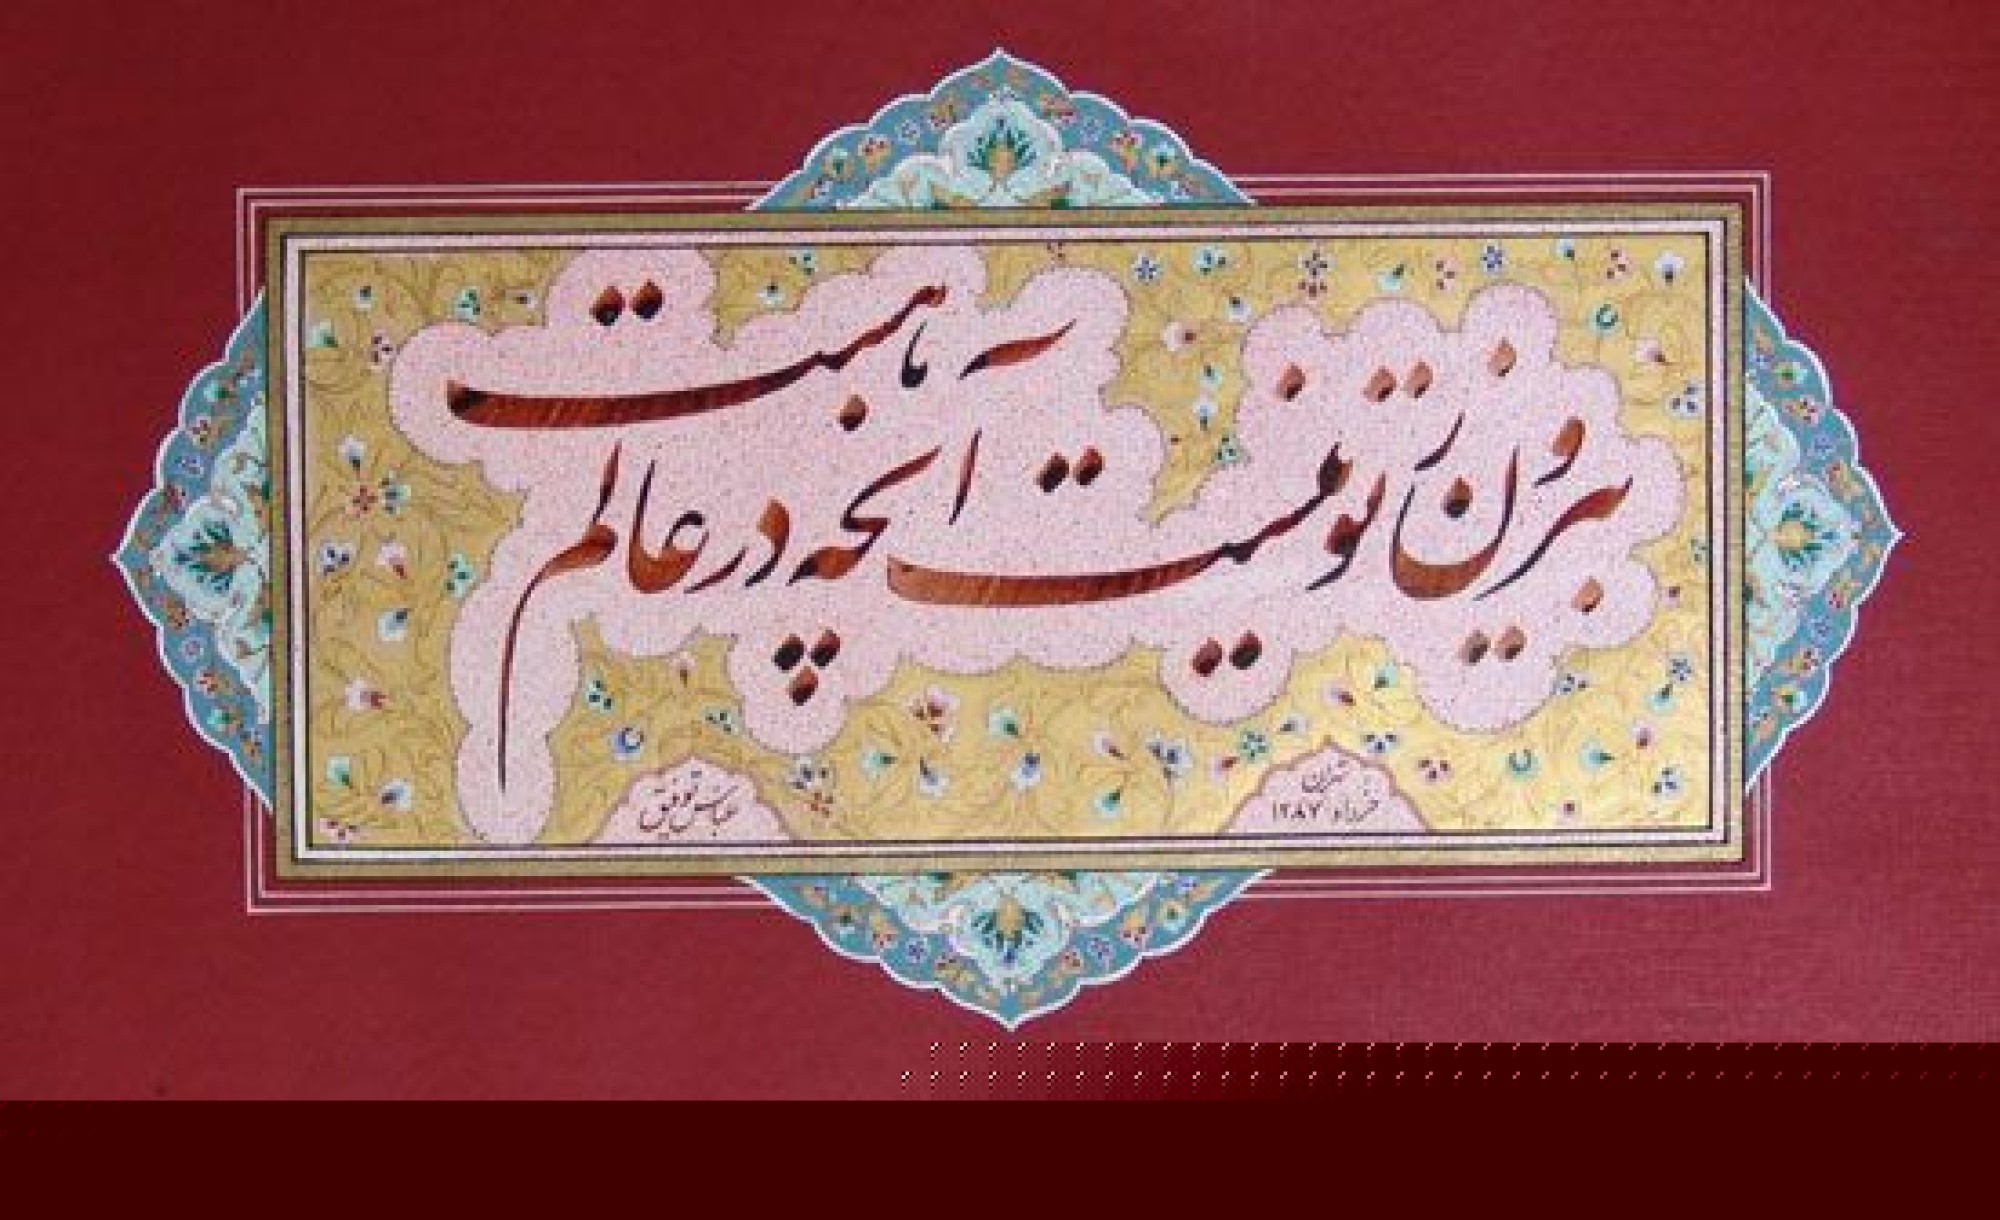 بیرون ز تو نیست آنچه در عالم هست
تهران
خرداد ۱۳۸۷
عباس توفیق